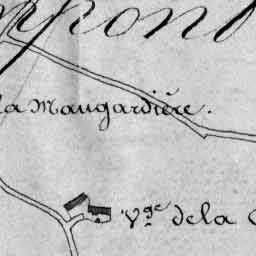 mpont
la Maugardière.
Vge de la